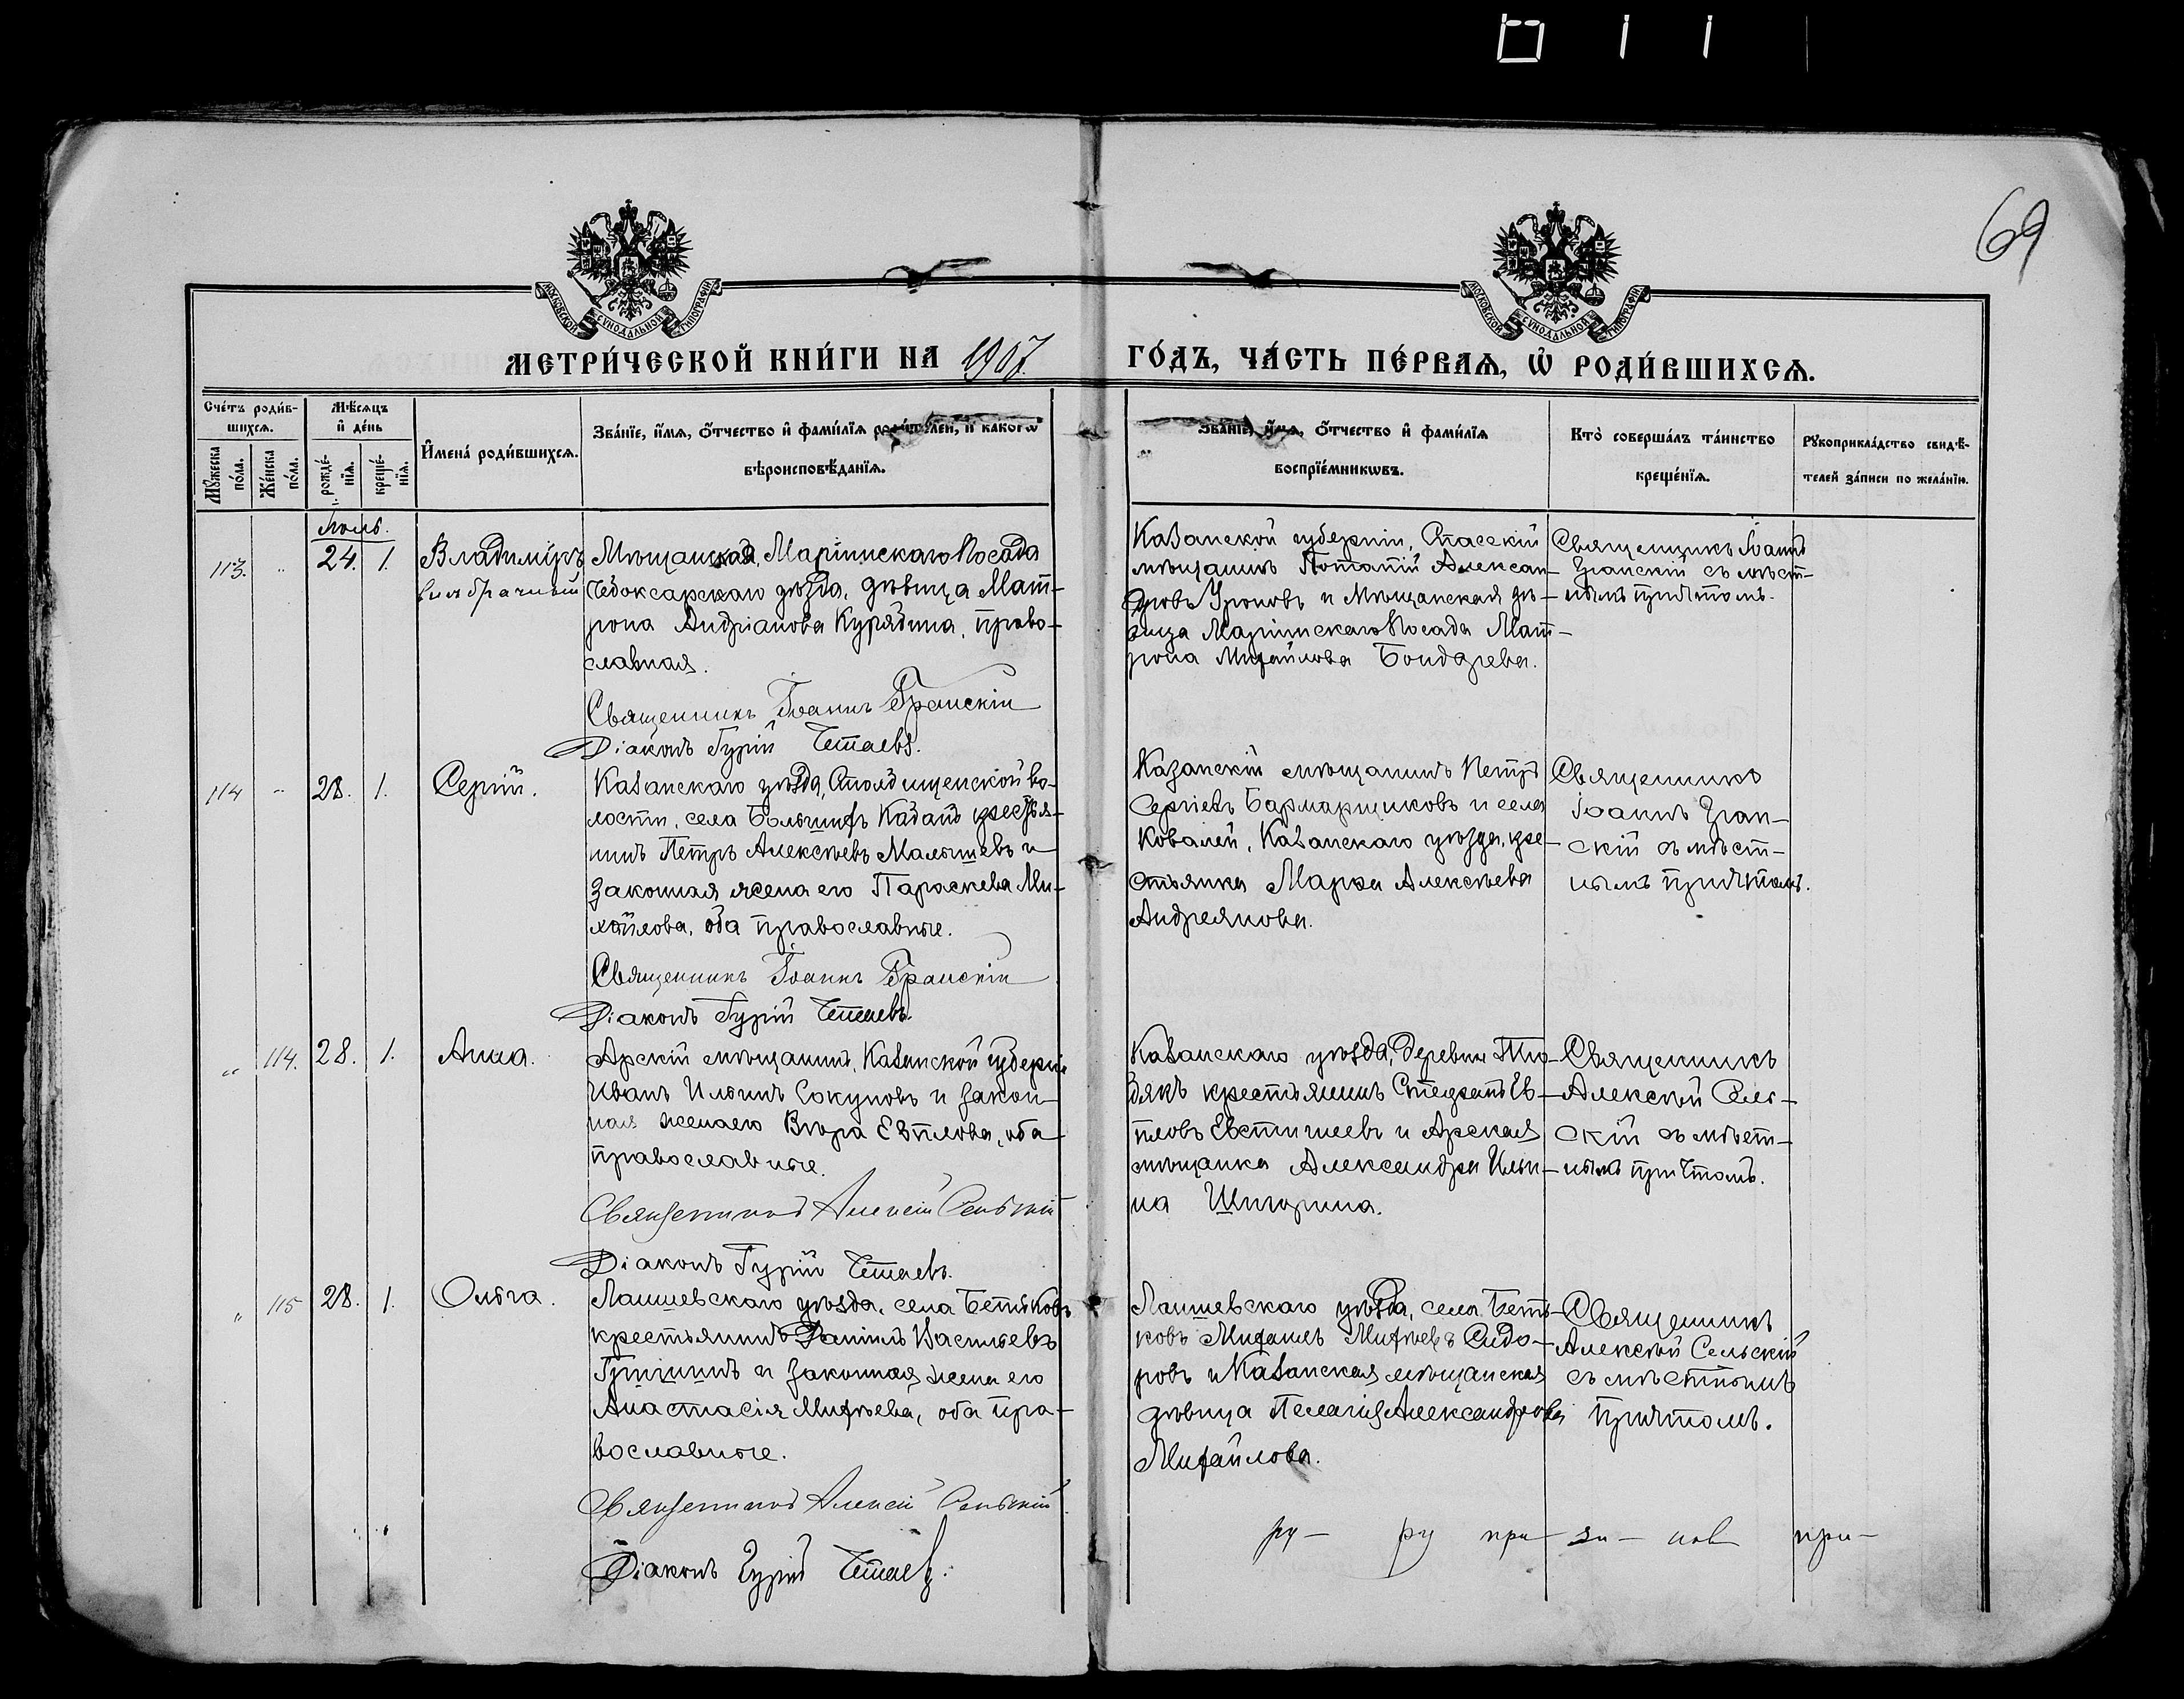 69
МОСКОВСКОЙ СУНОДАЛЬНОЙ ТИПОГРАФІИ
МОСКОВСКОЙ СУНОДАЛЬНОЙ ТИПОГРАФІИ
МЕТРИ́ЧЕСКОЙ КНИ́ГИ НА 1907
ГО́ДЪ, ЧА́СТЬ ПЕ́РВАѦ, Ѡ҆ РОДИ́ВШИХСѦ.
Сче́тъ роди́в-
шихсѧ.
Мꙋ́жеска по́ла.
Же́нска по́ла.
Мѣ́сѧцъ
и҆ де́нь
рожде́-
нїѧ.
креще́-
нїѧ.
И҆мена̀ роди́вшихсѧ.
Зва́нїе, и҆́мѧ, ѻ҆́тчество и҆ фами́лїѧ роди́телей, и҆ како́гѡ
вѣроисповѣ́данїѧ.
Зва́нїе, и҆́мѧ, ѻ҆́тчество и҆ фами́лїѧ
воспрїе́мникѡвъ.
Кто̀ соверша́лъ та́инство
креще́нїѧ.
Рꙋкоприкла́дство свидѣ́-
телей за́писи по жела́нїю.
Іюль.
113. " 24. 1. Владиміръ
внѣбрачный
Мѣщанская, Маріинскаго Посада
Чебоксарскаго уѣзда, дѣвица Мат-
рона Андріанова Курядина, право-
славная.
Священникъ Іоаннъ Гранскій
Діаконъ Гурій Четаевъ.
Казанской губерніи, Спасскій
мѣщанинъ Потапій Алексан-
дровъ Уроновъ и Мѣщанская дѣ-
вица Маріинскаго Посада Мат-
рона Михайлова Бондарева.
Священникъ Іоаннъ
Гранскій съ мѣст-
нымъ причтомъ.
114 " 28. 1. Сергій.
Казанскаго уѣзда, во-
лости, села Большихъ Кабанъ крестья-
нинъ Петръ Алексѣевъ Малышевъ и
законная жена его Параскева Ми-
хайлова, оба православные.
Священникъ Іоаннъ Гранскій
Діаконъ Гурій Четаевъ.
Казанскій мѣщанинъ Петръ
Сергіевъ Бармарщиковъ и села
Ковалей, Казанскаго уѣзда, кре-
стьянка Марѳа Алексѣева
Андреянова.
Священникъ
Іоаннъ Гран-
скій съ мѣст-
нымъ причтомъ.
" 114. 28. 1. Анна.
Арскій мѣщанинъ, Казанской губерніи
Иванъ Ильинъ Сокуновъ и закон-
ная жена его Вѣра Евплова, оба
православные.
Священникъ Алексій Сельскій
Діаконъ Гурій Четаевъ.
Казанскаго уѣзда, деревни Тю-
бякъ крестьянинъ Ев-
пловъ Евстигнеевъ и Арская
мѣщанка Александра Ильи-
на
Священникъ
Алексѣй Сель-
скій съ мѣст-
нымъ причтомъ.
" 115 28. 1. Ольга.
Лаишевскаго уѣзда, села Бетьковъ
крестьянинъ Даніилъ Васильевъ
Гришинъ и законная жена его
Анастасія Михѣева, оба пра-
вославные.
Священникъ Алексій Сельскій
Діаконъ Гурій Четаевъ.
Лаишевскаго уѣзда, села Беть-
ковъ Михаилъ Михѣевъ Сидо-
ровъ и Казанская мѣщанская
дѣвица Пелагія Александрова
Михайлова.
Священникъ
Алексѣй Сельскій
съ мѣстнымъ
причтомъ.
ру- ру при- зи- нов при-